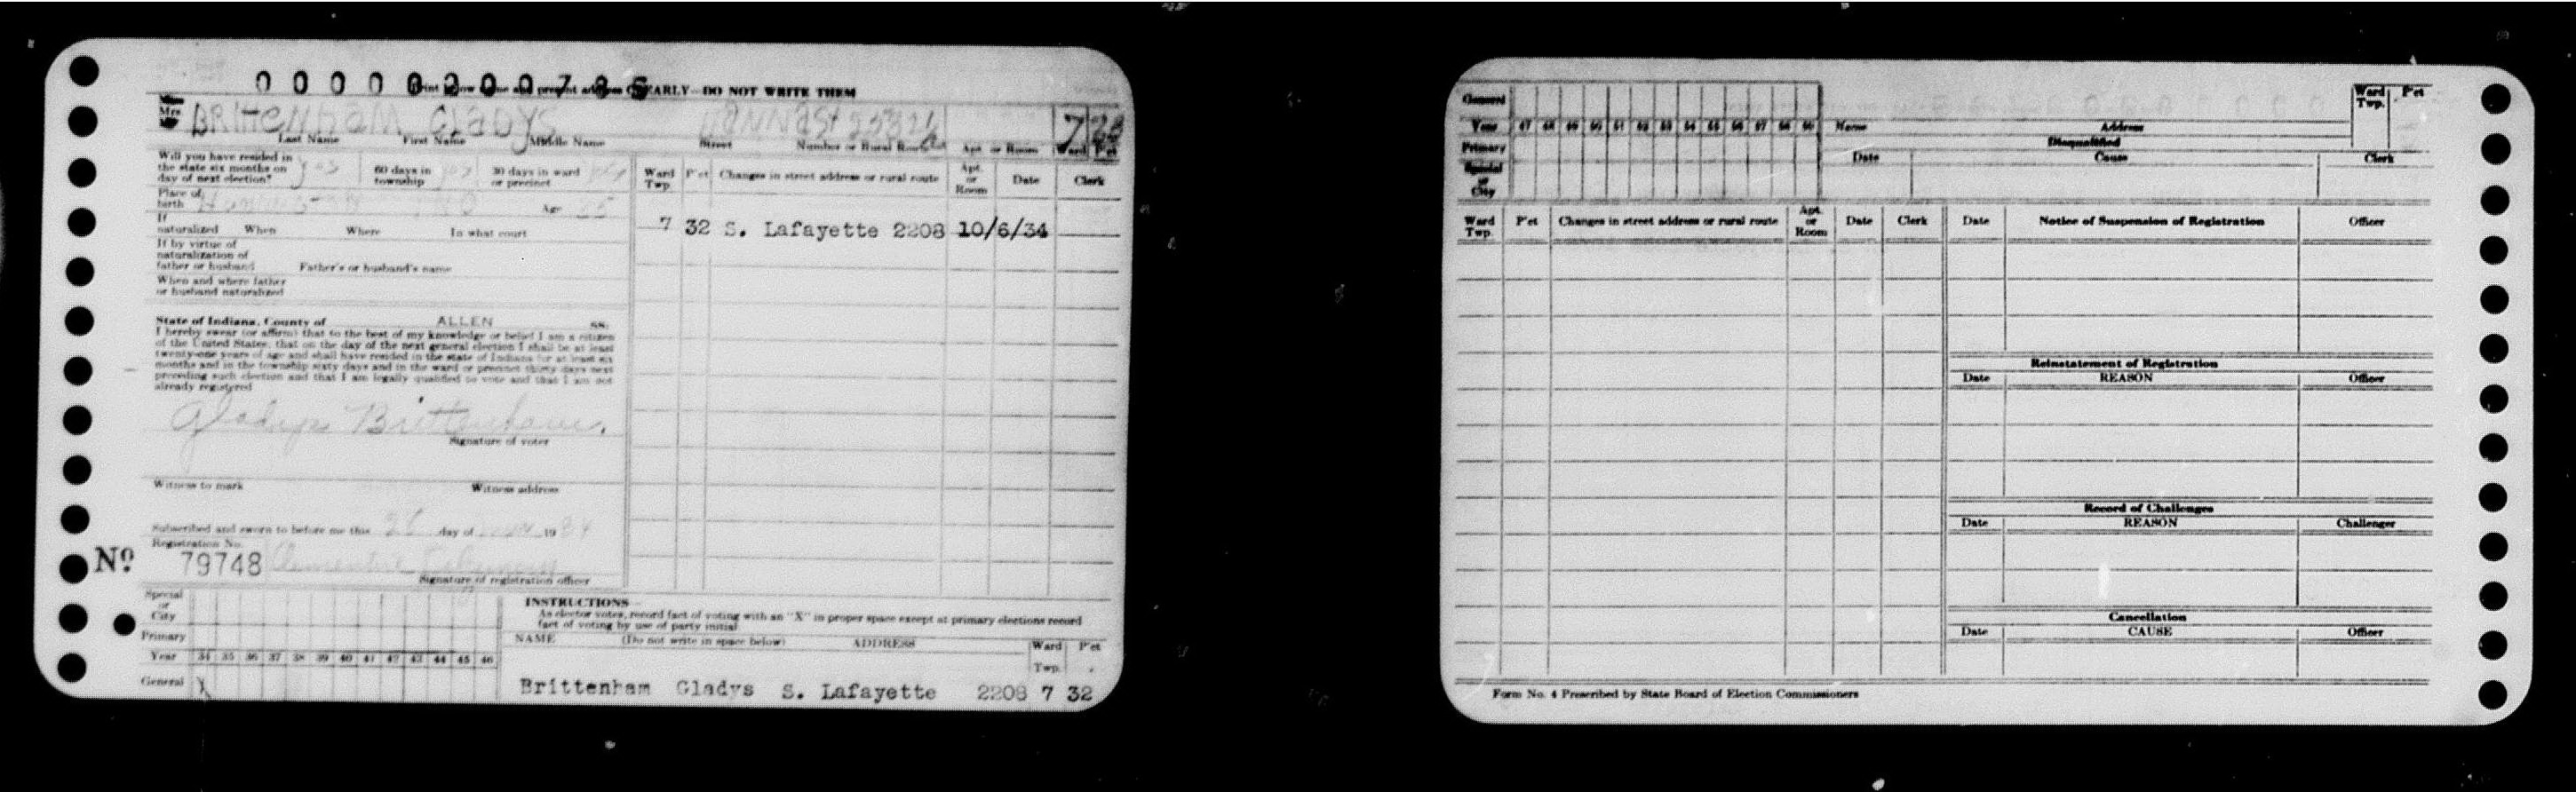 Print below name and present address CLEARLY—DO NOT WRITE THEM
Mrs BRITTENHAM GLADYS 7
Last Name First Name Middle Name Street Number or Rural Route Apt. or Room Ward P'ct
Will you have resided in the state six months on day of next election? yes 60 days in township yes 30 days in ward or precinct yes
Place of birth Age
If naturalized When Where In what court
If by virtue of naturalization of father or husband Father's or husband's name
When and where father or husband naturalized
State of Indiana, County of ALLEN ss.
I hereby swear (or affirm) that to the best of my knowledge or belief I am a citizen
of the United States, that on the day of the next general election I shall be at least
twenty-one years of age and shall have resided in the state of Indiana for at least six
months and in the township sixty days and in the ward or precinct thirty days next
preceding such election and that I am legally qualified to vote and that I am not
already registered
Gladys Brittenham.
Signature of voter
Witness to mark Witness address
Subscribed and sworn to before me this day of 19 34
Registration No.
Nº 79748
Signature of registration officer
Ward Twp. P'ct Changes in street address or rural route Apt. or Room Date Clerk
7 32 S. Lafayette 2208 10/6/34
Special or City
Primary
Year 34 35 36 37 38 39 40 41 42 43 44 45 46
General X
INSTRUCTIONS
As elector votes, record fact of voting with an "X" in proper space except at primary elections record
fact of voting by use of party initial
NAME (Do not write in space below) ADDRESS Ward Twp. P'ct
Brittenham Gladys S. Lafayette 2208 7 32
General
Year 47 48 49 50 51 52 53 54 55 56 57 58 59
Primary
Special or City
Name Address Ward Twp. P'ct
Disqualified
Date Cause Clerk
Ward Twp. P'ct Changes in street address or rural route Apt. or Room Date Clerk
Date Notice of Suspension of Registration Officer
Reinstatement of Registration
Date REASON Officer
Record of Challenges
Date REASON Challenger
Cancellation
Date CAUSE Officer
Form No. 4 Prescribed by State Board of Election Commissioners